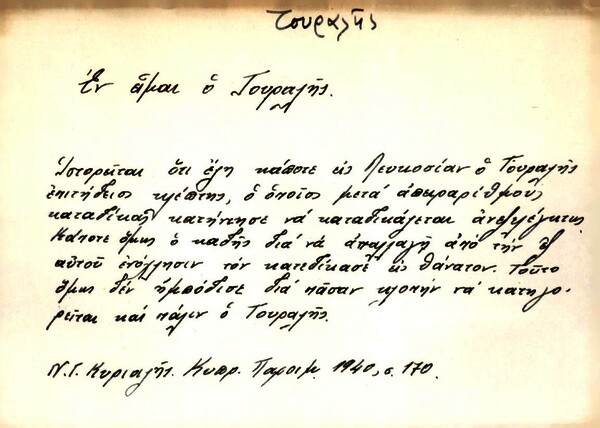 Τουραλῆς
Ἐν ἅμαι ὁ Τουραλῆς.
Ἱστορεῖται ὅτι ἔζη κάποτε εἰς Λευκοσίαν ὁ Τουραλῆς
ἐπιτήδειος κλέπτης, ὁ ὁποῖος μετά ἀπειραρίθμους
καταδίκας κατήντησε νά καταδικάζεται ἀνεξελέγκτως.
Κάποτε ὅμως ὁ καδῆς διά νά ἀπαλλαγῇ ἀπό τήν ἐξ
αὐτοῦ ἐνόχλησιν τόν κατεδίκασε εἰς θάνατον. Τοῦτο
ὅμως δέν ἠμπόδισε διά πᾶσαν κλοπήν νά κατηγο-
ρεῖται καί πάλιν ὁ Τουραλῆς.
Ν.Γ. Κυριαζῆς. Κυπρ. Παροιμ. 1940, σ. 170.